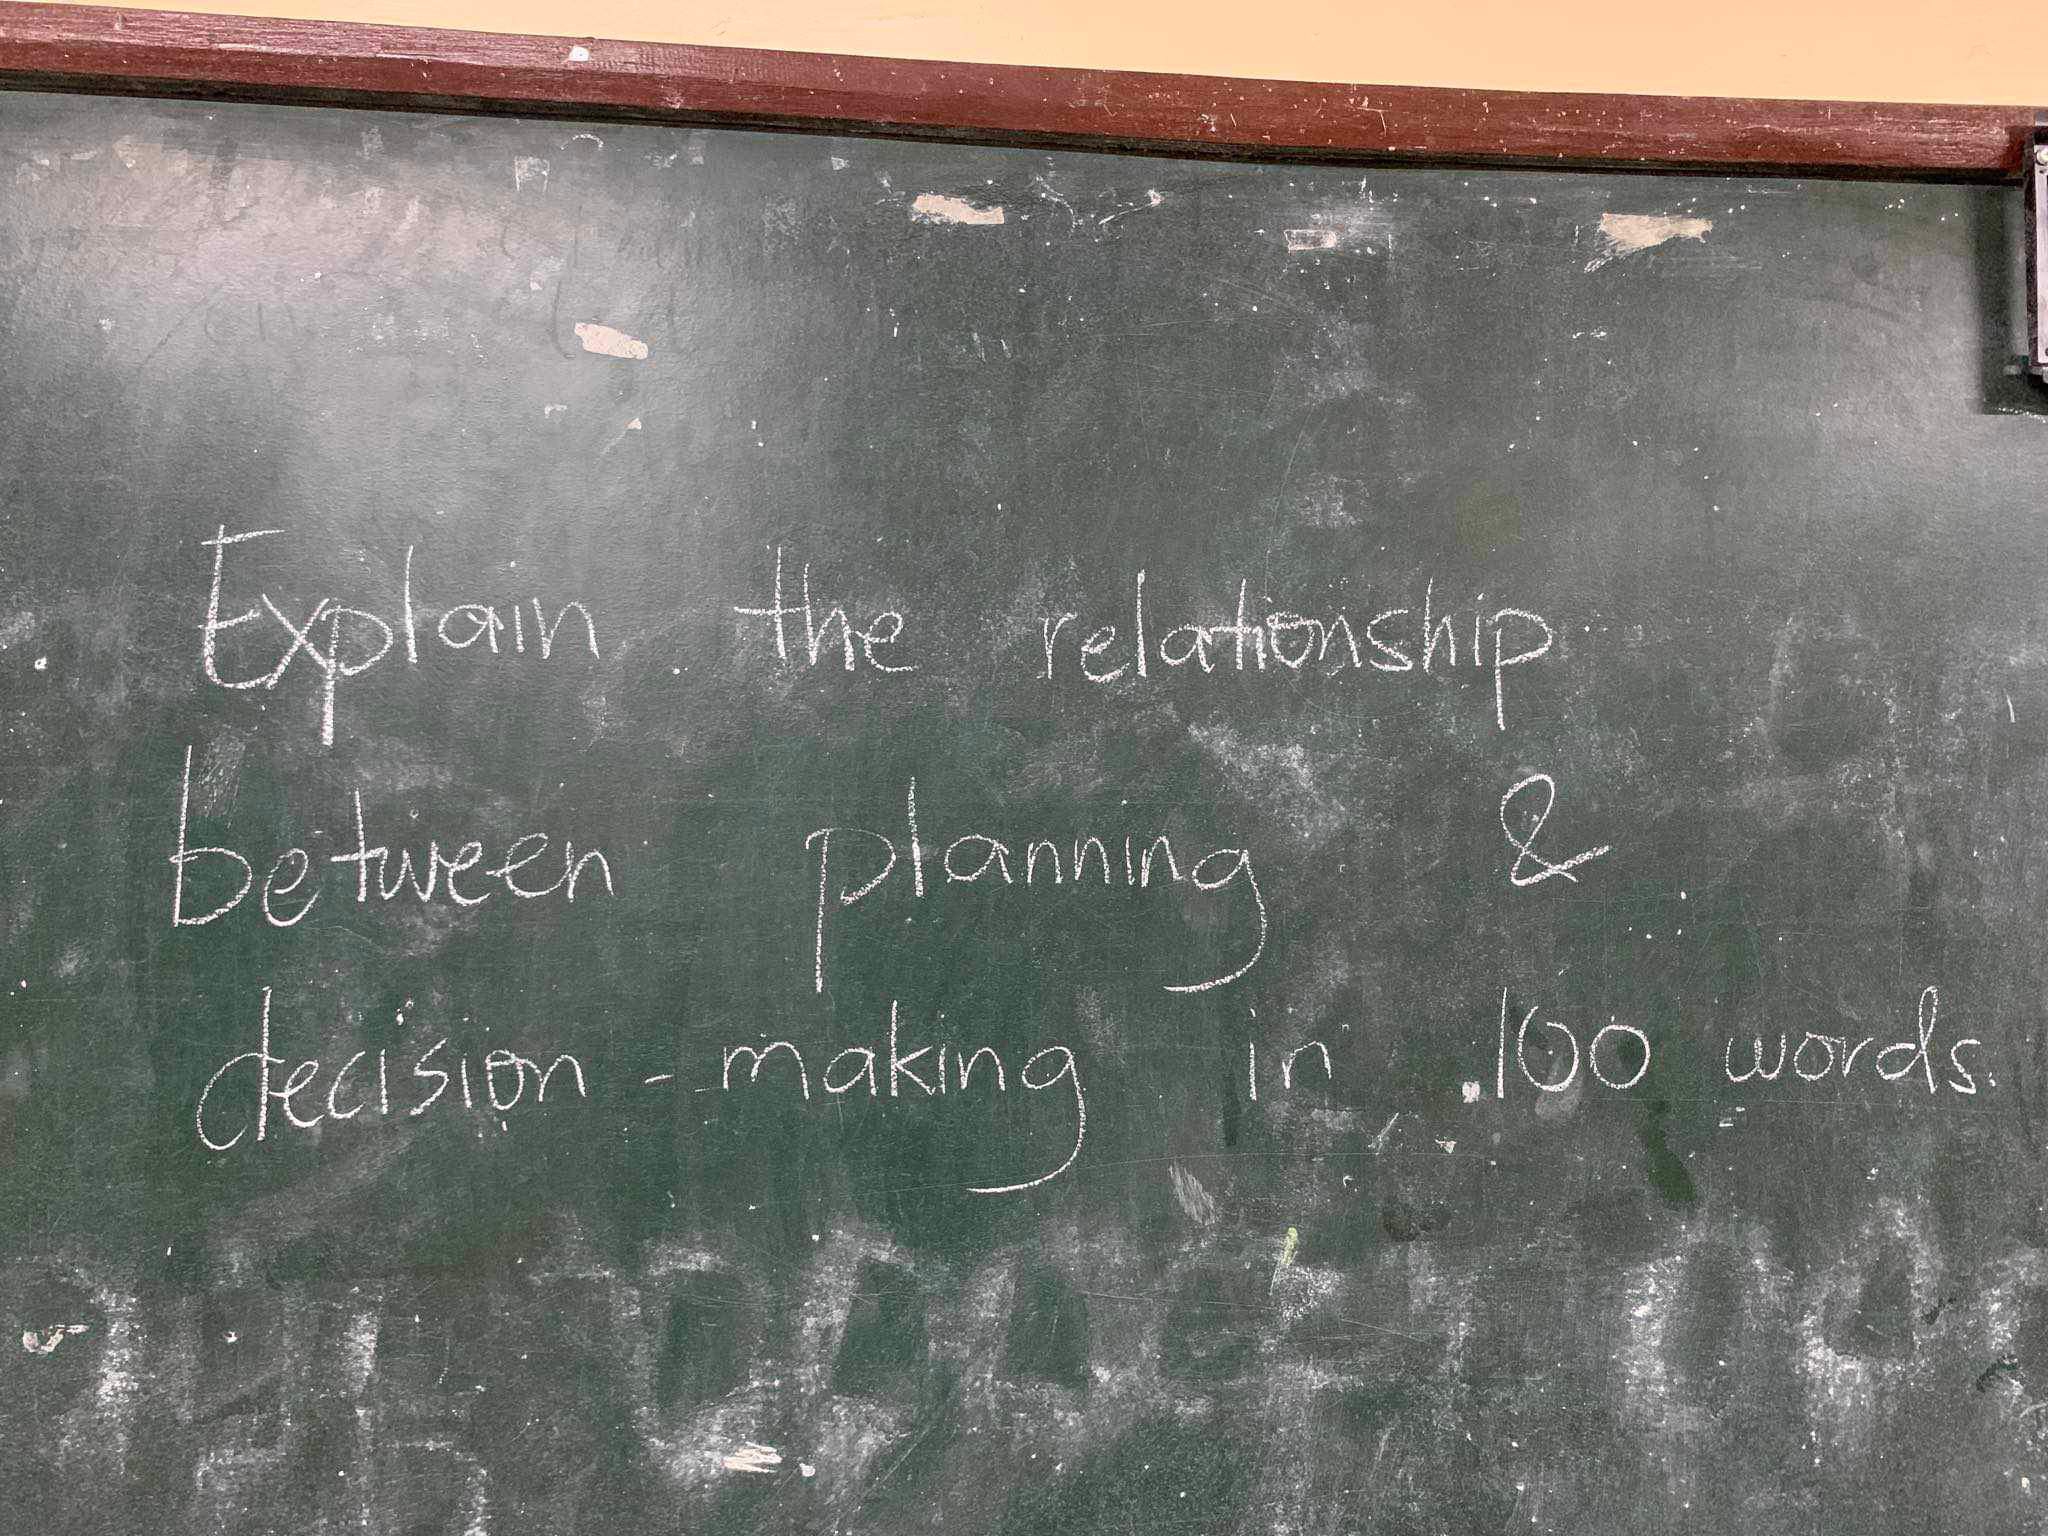 Explain the relationship
between planning &
decision-making in 100 words.